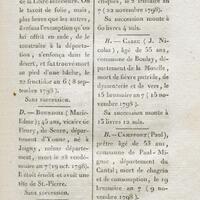 de la Loire Inférieure. On
le taxoit de folie, mais,
plus heureux que les autres,
il eut l'exemption qu'on
lui offrit en rade, de
se soustraire à la déporta-
tion, s'enfonça dans le
désert, et fut trouvé mort
au pied d'une bûche, le
22 fructidor an 6 (8 sep-
tembre 1798.)
Sans succession.
D. — (Marie-
Edme); 45 ans, vicaire de
Fleury, de Senre, dépar-
tement d'Yonne, né à
Joigny, même départe-
ment, mort le 28 vendé-
miaire an 7 (19 octobre
1798).
Il étoit estropié et avoit une
tête de St.-Pierre.
Sans succession.
cinques, le 2 frimaire an
7 (22 novembre 1798).
Sa succession monte à
60 livres 4 sols.
H. — (J. Ni-
colas), âgé de 55 ans,
commune de Boulay, dépar-
tement de la Moselle,
mort de fièvre putride, de
dyssenterie et de vers, le
15 brumaire an 7 (5 no-
vembre 1798.)
Sa succession monte à
13 livres 12 sols.
B. — (Paul),
prêtre âgé de 53 ans,
commune de Paul-Mi-
gnac, département du
Cantal; mort de chagrin
et de consomption, le 19
brumaire an 7 (9 no-
vembre 1798.)